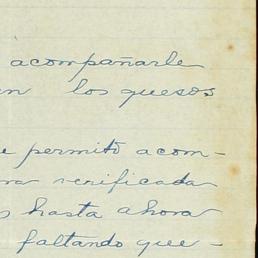 acompañarle
an los quesos
e permito acom-
ra verificada
s hasta ahora
faltando que-